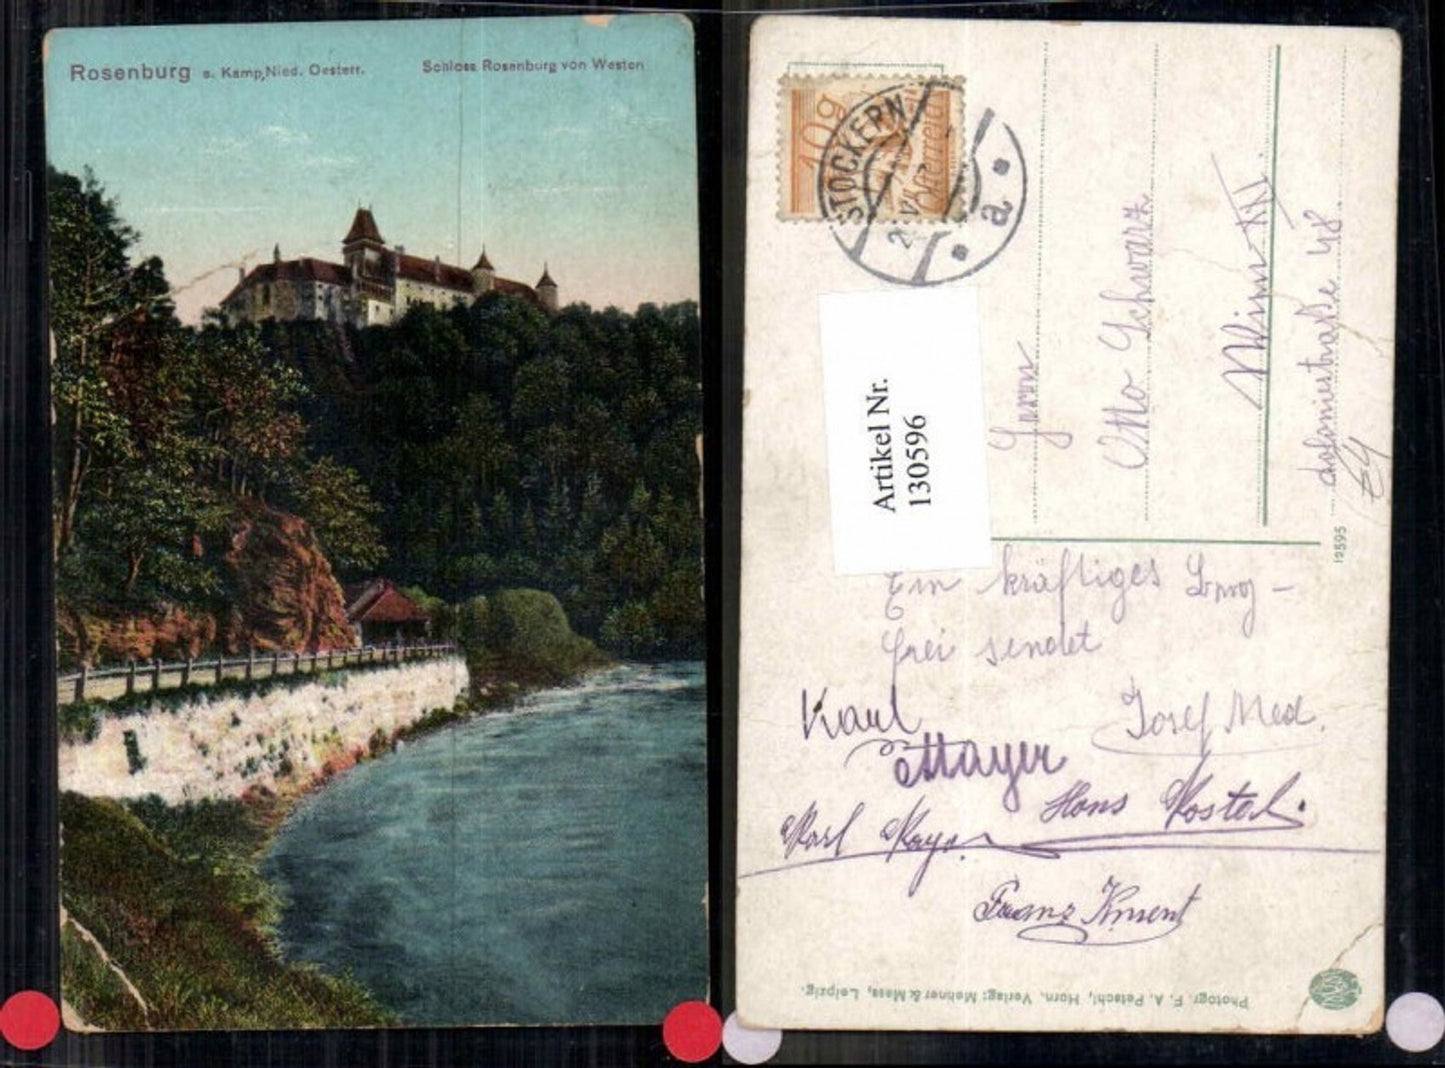 Rosenburg a. Kamp, Nied. Oesterr.
Schloss Rosenburg von Westen
10g
Österreich
STOCKERN
a
Artikel Nr.
130596
Herrn
Otto Schwarz
Wien XIV.
48
19595
Ein kräftiges
frei sendet
Karl
Mayer
Josef Med.
Karl Mayer
Franz Kment
Photogr. F. A. Petschl, Horn. Verlag: Mehner & Maas, Leipzig.